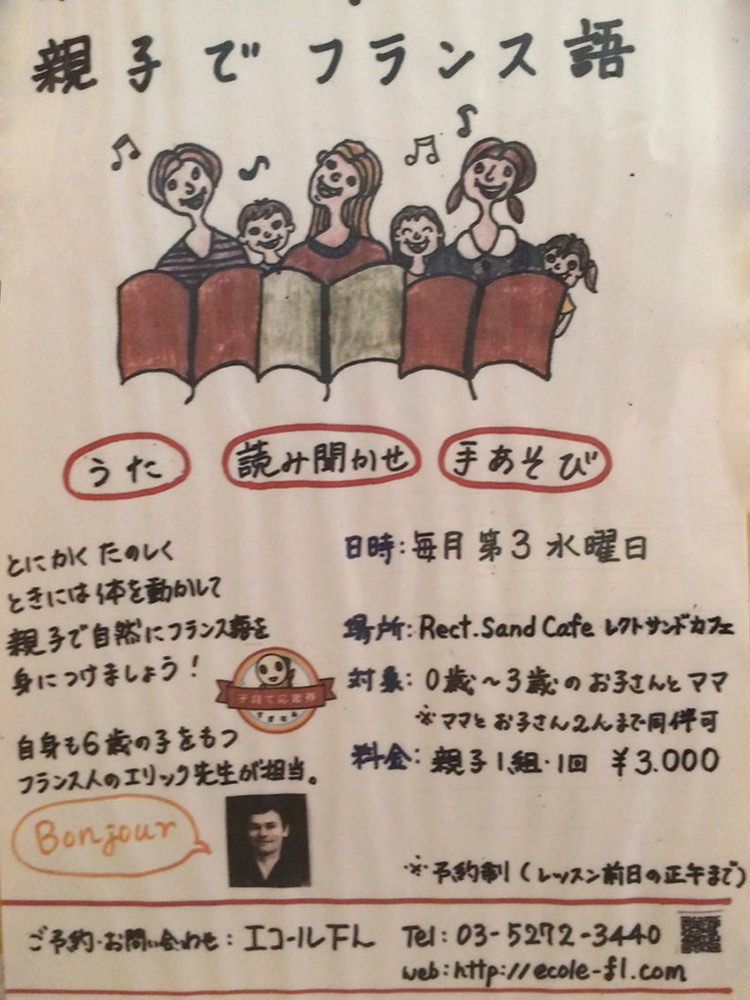 親子でフランス語
うた 読み聞かせ 手あそび
とにかく たのしく
ときには体を動かして
親子で自然にフランス語を
身につけましょう!
子育て応援券
自身も6歳の子をもつ
フランス人のエリック先生が担当。
Bonjour
日時:毎月 第3 水曜日
場所:Rect.Sand Cafe レクトサンドカフェ
対象:0歳~3歳のお子さんとママ
※ママとお子さん2人まで同伴可
料金:親子1組・1回 ¥3.000
※予約制(レッスン前日の正午まで)
ご予約・お問い合わせ:エコールFL Tel:03-5272-3440
web:http://ecole-fl.com